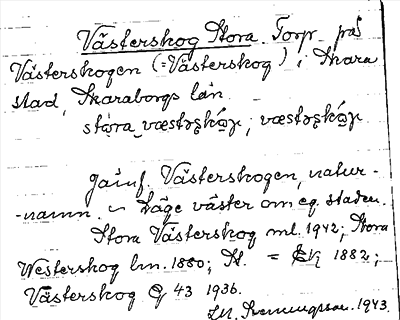 Västerskog Stora. Torp på
Västerskogen (=Västerskog) i Skara
stad, Skaraborgs län.
stωra væstəʂkωg, væstəʂkωg
Jämf. Västerskogen, natur-
-namn. – Läge väster om eg. staden.
Stora Västerskog ml. 1942; Stora
Westerskog lm. 1880; St. = 1882;
Västerskog 43 1936.
1943.